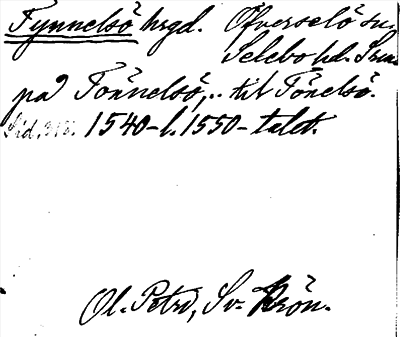 Fynnelsö hrgd. Öfverselö sn.
Selebo hd. Srm.
på Tönnelsö,.. til Tönelsö.
Sid. 318. 1540-t. l. 1550-talet.
Ol. Petri, Sv. Krön.